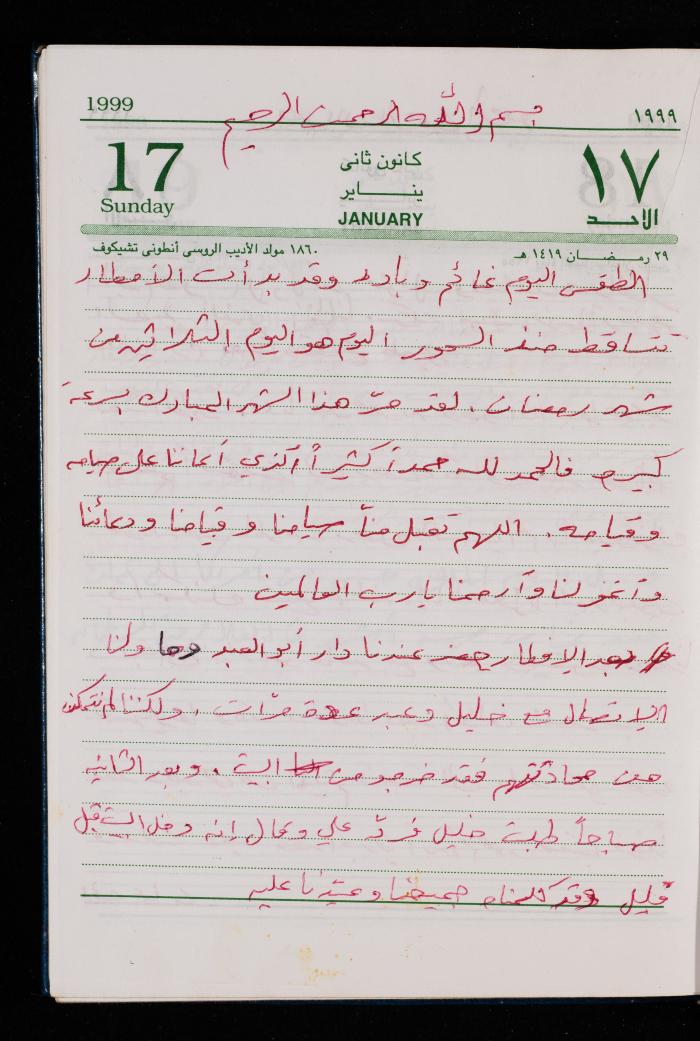 1999 بسم الله الرحمن الرحيم ١٩٩٩
17 كانون ثانى ١٧
Sunday ينـــاير الأحـد
JANUARY
١٨٦٠ مولد الأديب الروسى أنطونى تشيكوف ٢٩ رمـضـان ١٤١٩ هـ
الطقس اليوم غائم وبارد وقد بدأت الأمطار
تتساقط منذ السحور اليوم هو اليوم الثلاثين من
شهر رمضان. لقد مرّ هذا الشهر المبارك بسرعة
كبيرة فالحمد لله حمداً كثيراً الذي أعاننا على صيامه
وقيامه. اللهم تقبل منّا صيامنا وقيامنا ودعائنا
وأغفر لنا وأرحمنا يا رب العالمين
بعد الإفطار حضر عندنا دار أبو العبد وحاولنا
الإتصال مع خليل وعبر عدة مرّات، ولكننا لم نتمكن
من محادثتهم فقد خرجو من البيت. وبعد الثانية
صباحاً طلبت خليل فردّ علي وقال إنه دخل البيت قبل
قليل وقد كلمناه جميعنا وعيّدنا عليه